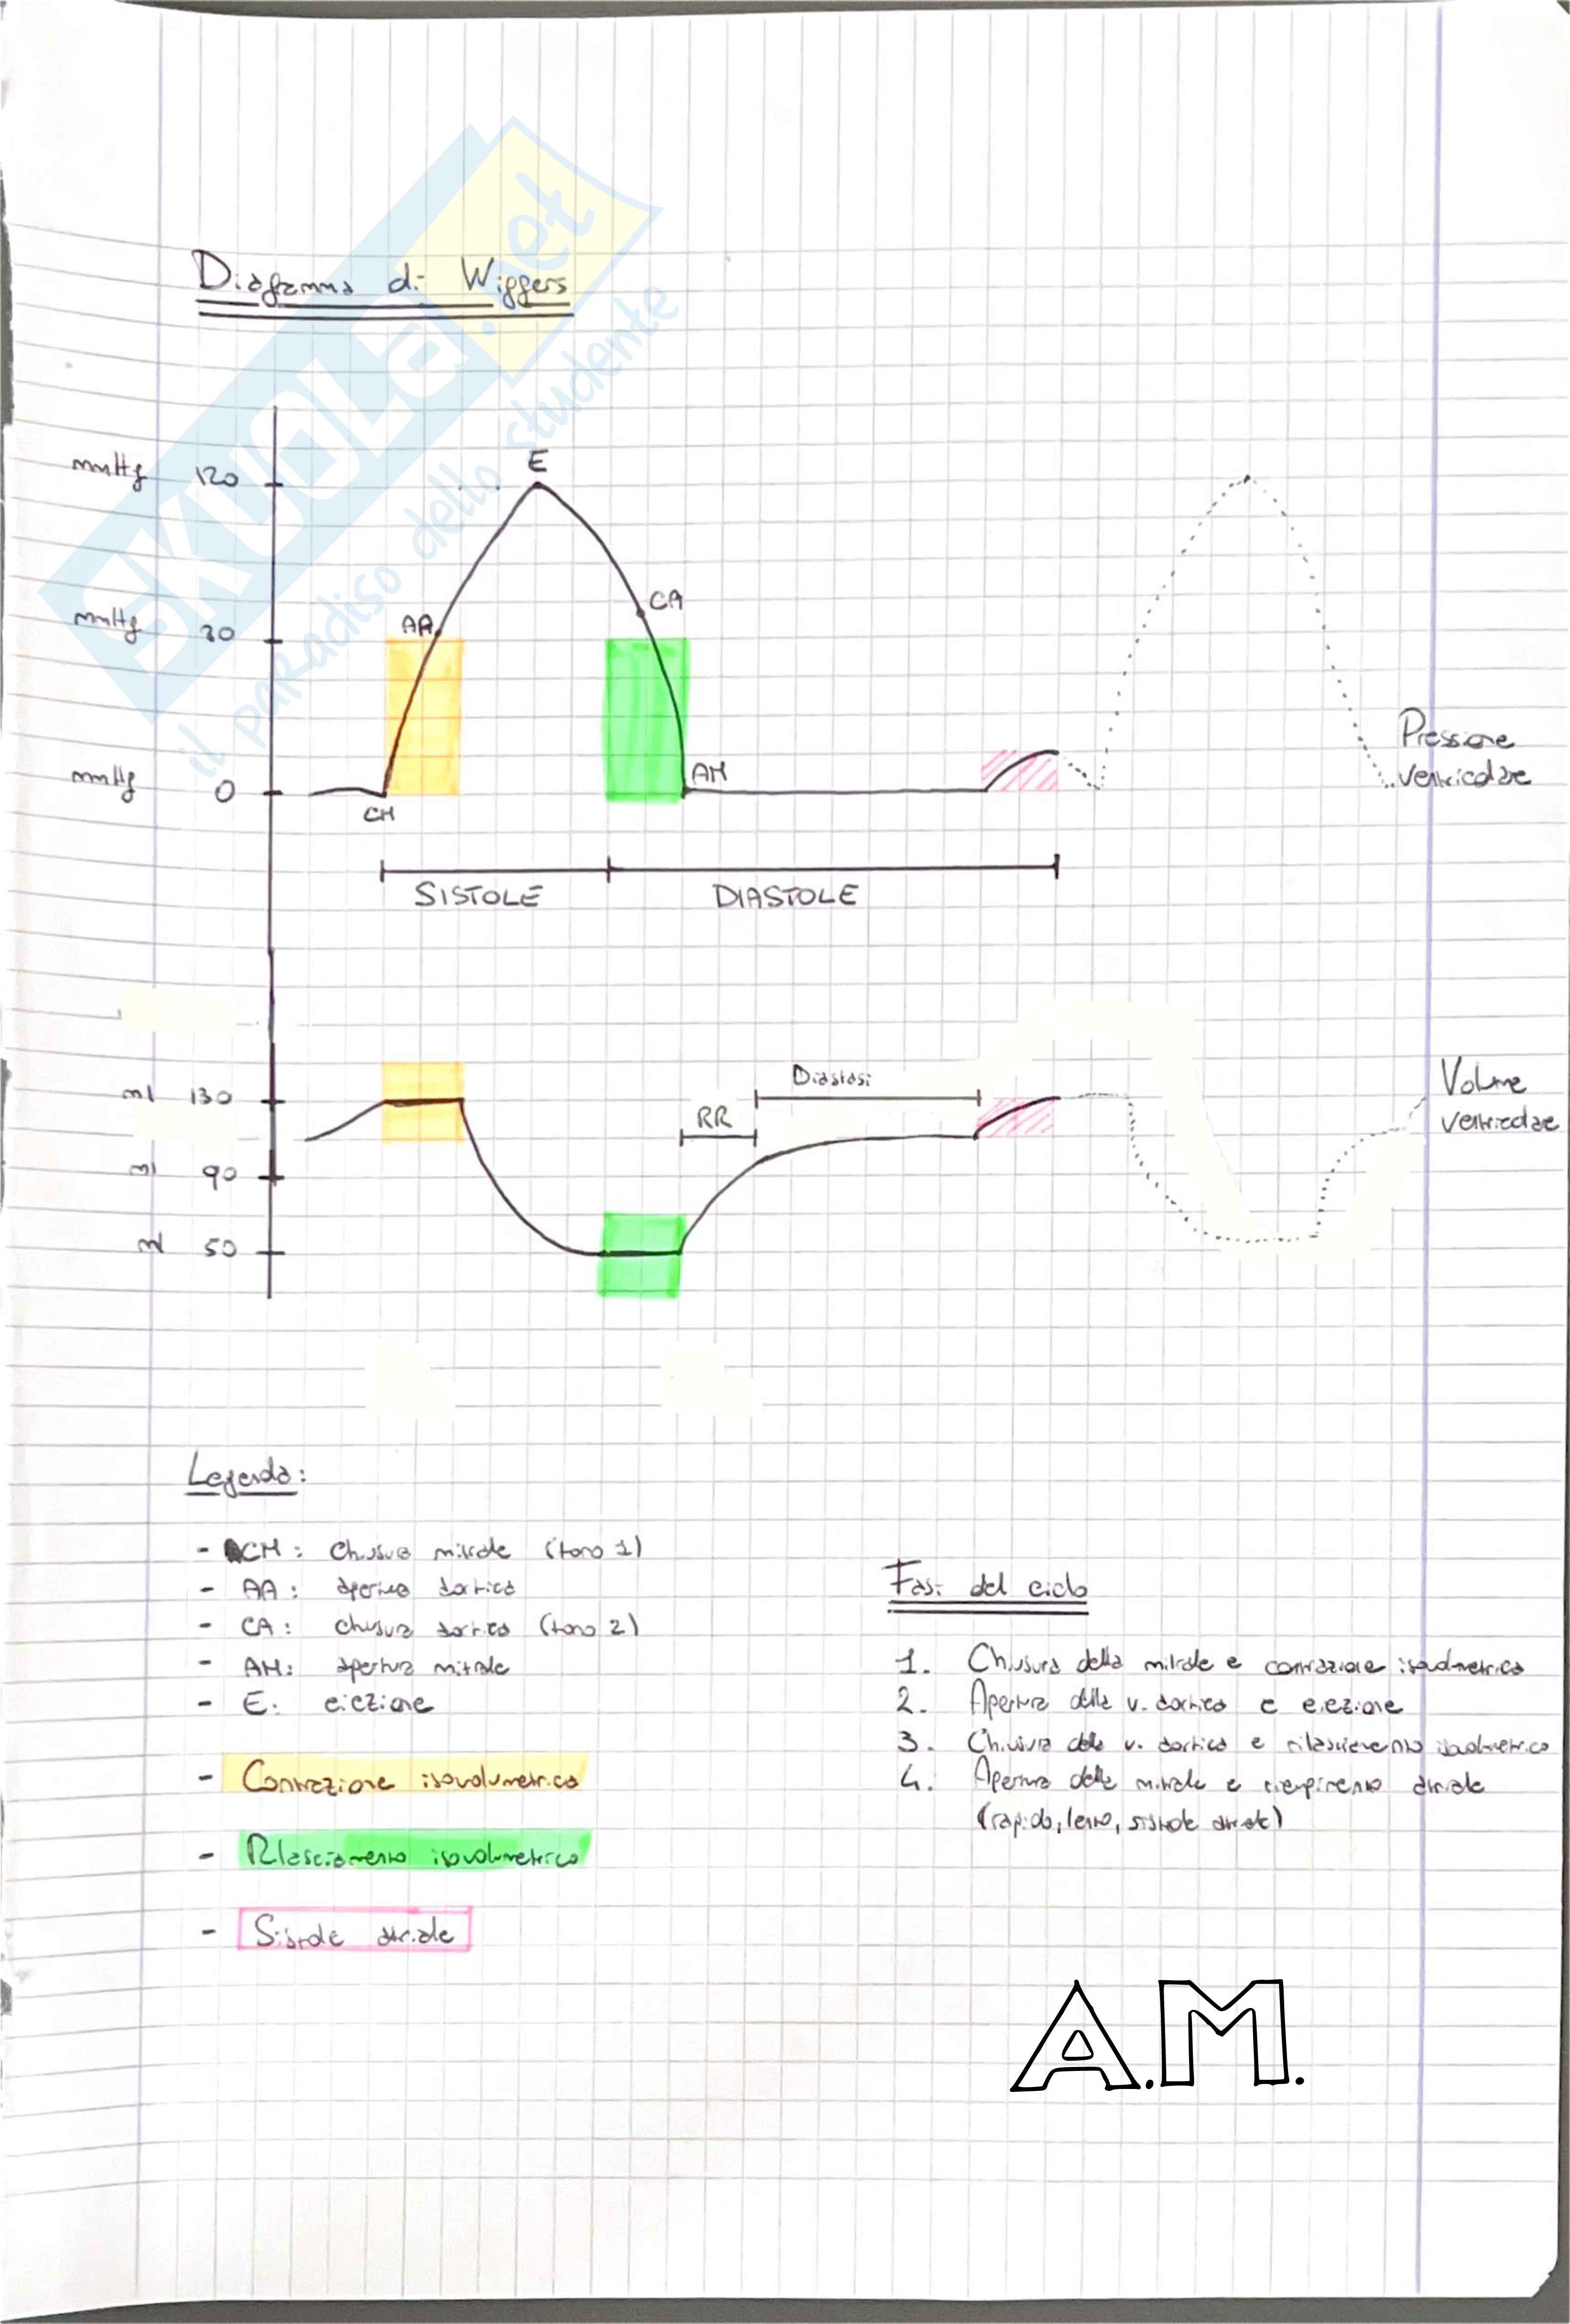 Diagramma di Wiggers
mmHg 120
E
CA
AA
mmHg 30
Pressione
mmHg 0
AM
ventricolare
CM
SISTOLE
DIASTOLE
Diastasi
Volume
ml 130
RR
ventricolare
ml 90
ml 50
Legenda:
- CM: Chiusura mitrale (tono 1)
- AA: apertura aortica
- CA: chiusura aortica (tono 2)
- AM: apertura mitrale
- E: eiezione
- Contrazione isovolumetrica
- Rilasciamento isovolumetrico
- Sistole atriale
Fasi del ciclo
1. Chiusura della mitrale e contrazione isovolumetrica
2. Apertura della v. aortica e eiezione
3. Chiusura della v. aortica e rilasciamento isovolumetrico
4. Apertura della mitrale e riempimento atriale
(rapido, lento, sistole atriale)
A.M.
SKUOLA.net
il paradiso dello studente